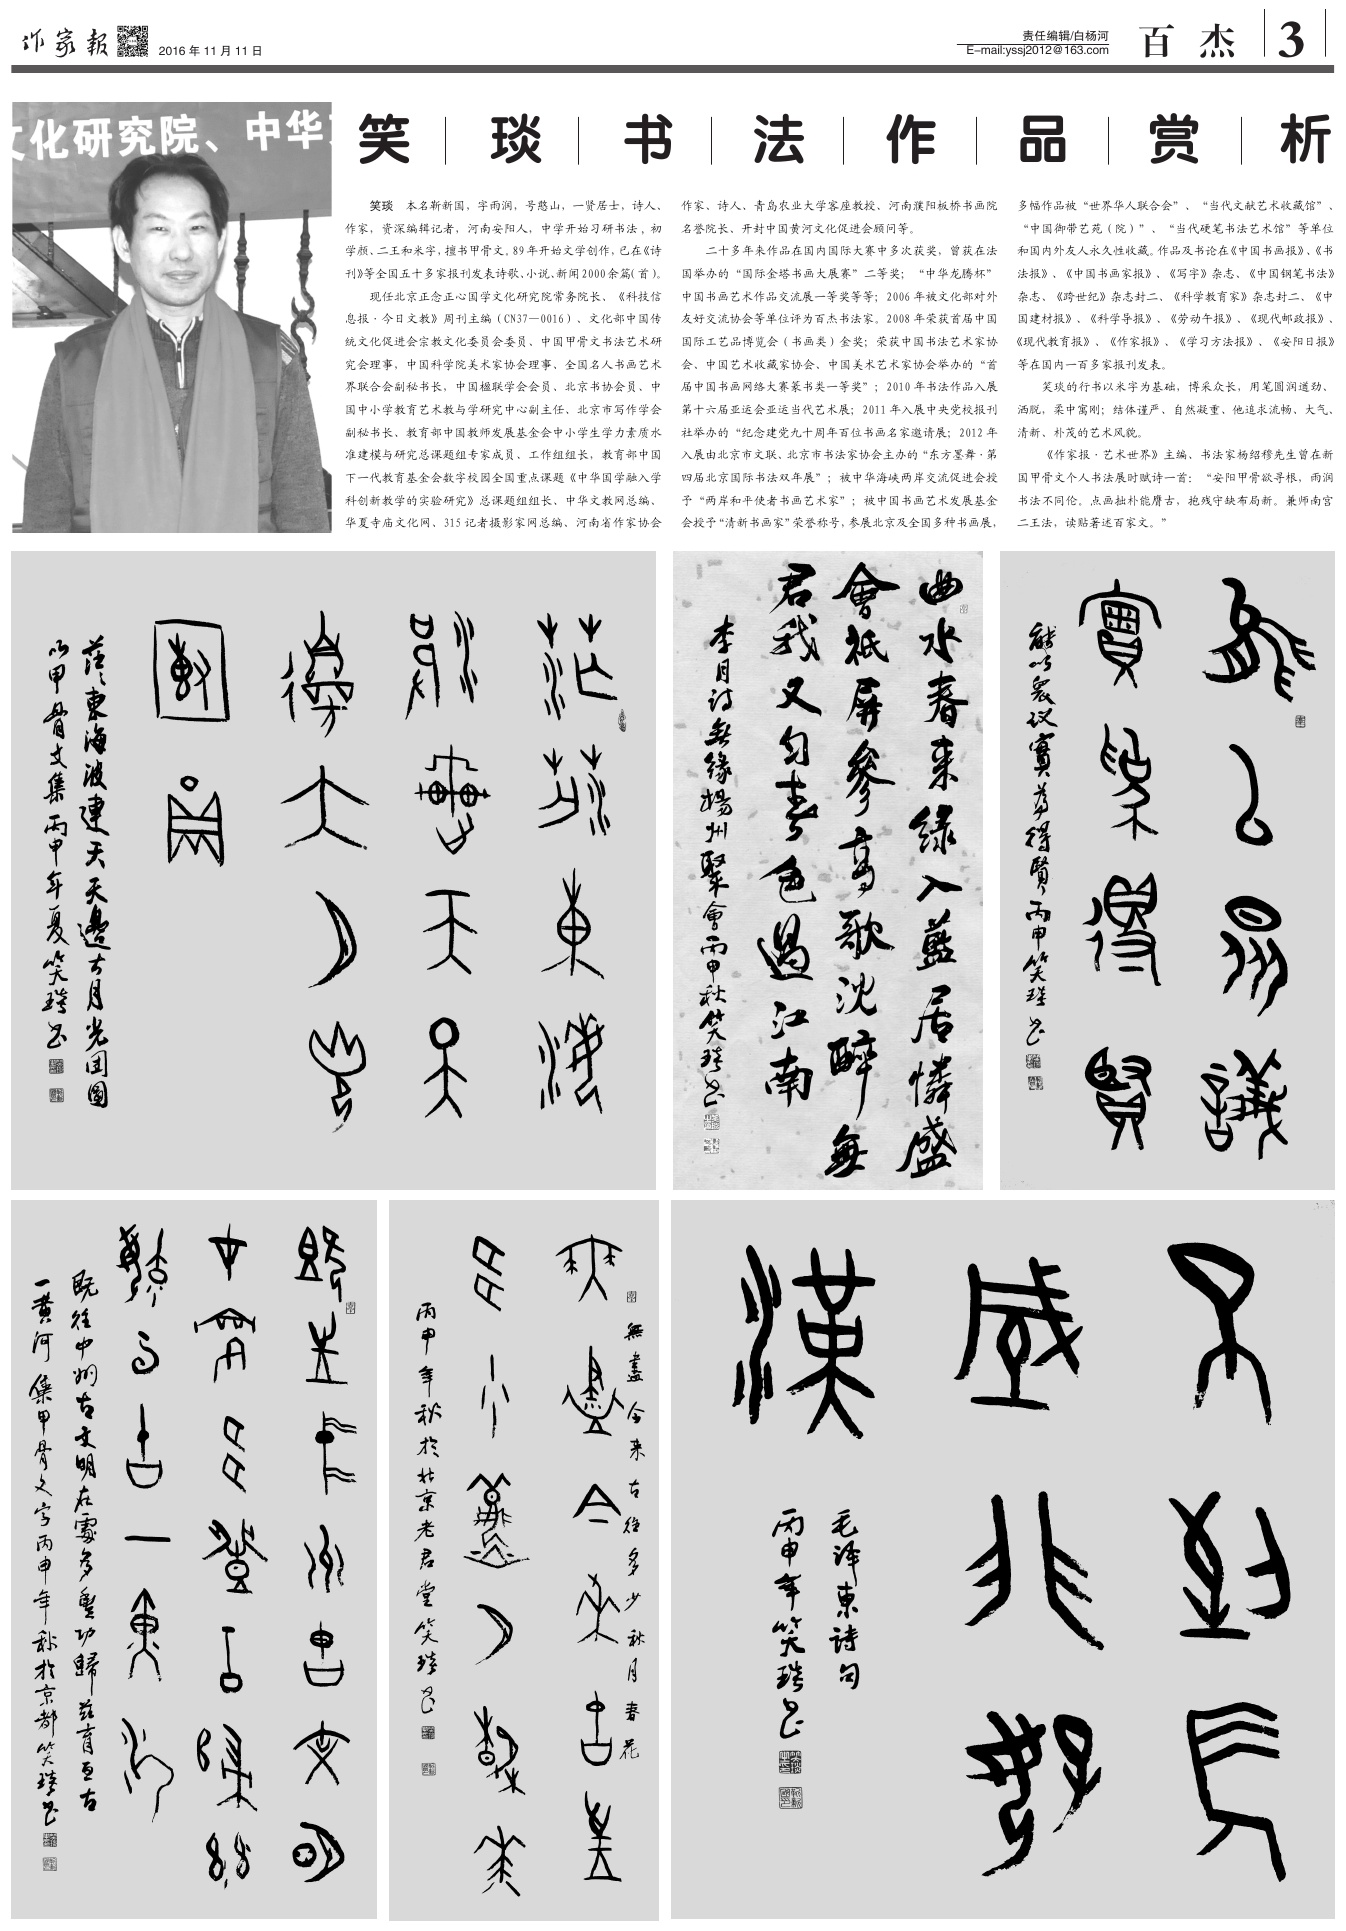 作家报
2016 年 11 月 11 日
责任编辑/白杨河
E-mail:yssj2012@163.com
百 杰
3
文化研究院、中华
笑 琰 书 法 作 品 赏 析
笑琰 本名靳新国，字雨润，号憨山，一贤居士，诗人、
作家，资深编辑记者，河南安阳人，中学开始习研书法，初
学颜、二王和米字，擅书甲骨文。89 年开始文学创作，已在《诗
刊》等全国五十多家报刊发表诗歌、小说、新闻 2000 余篇（首）。
现任北京正念正心国学文化研究院常务院长、《科技信
息报·今日文教》周刊主编（CN37—0016）、文化部中国传
统文化促进会宗教文化委员会委员、中国甲骨文书法艺术研
究会理事，中国科学院美术家协会理事、全国名人书画艺术
界联合会副秘书长，中国楹联学会会员、北京书协会员、中
国中小学教育艺术教与学研究中心副主任、北京市写作学会
副秘书长、教育部中国教师发展基金会中小学生学力素质水
准建模与研究总课题组专家成员、工作组组长，教育部中国
下一代教育基金会数字校园全国重点课题《中华国学融入学
科创新教学的实验研究》总课题组组长、中华文教网总编、
华夏寺庙文化网、315 记者摄影家网总编、河南省作家协会
作家、诗人、青岛农业大学客座教授、河南濮阳板桥书画院
名誉院长、开封中国黄河文化促进会顾问等。
二十多年来作品在国内国际大赛中多次获奖，曾获在法
国举办的“国际金塔书画大展赛”二等奖；“中华龙腾杯”
中国书画艺术作品交流展一等奖等等；2006 年被文化部对外
友好交流协会等单位评为百杰书法家。2008 年荣获首届中国
国际工艺品博览会（书画类）金奖；荣获中国书法艺术家协
会、中国艺术收藏家协会、中国美术艺术家协会举办的“首
届中国书画网络大赛篆书类一等奖”；2010 年书法作品入展
第十六届亚运会亚运当代艺术展；2011 年入展中央党校报刊
社举办的“纪念建党九十周年百位书画名家邀请展；2012 年
入展由北京市文联、北京市书法家协会主办的“东方墨舞·第
四届北京国际书法双年展”；被中华海峡两岸交流促进会授
予“两岸和平使者书画艺术家”；被中国书画艺术发展基金
会授予“清新书画家”荣誉称号，参展北京及全国多种书画展，
多幅作品被“世界华人联合会”、“当代文献艺术收藏馆”、
“中国御带艺苑（院）”、“当代硬笔书法艺术馆”等单位
和国内外友人永久性收藏。作品及书论在《中国书画报》、《书
法报》、《中国书画家报》、《写字》杂志、《中国钢笔书法》
杂志、《跨世纪》杂志封二、《科学教育家》杂志封二、《中
国建材报》、《科学导报》、《劳动午报》、《现代邮政报》、
《现代教育报》、《作家报》、《学习方法报》、《安阳日报》
等在国内一百多家报刊发表。
笑琰的行书以米字为基础，博采众长，用笔圆润遒劲、
洒脱，柔中寓刚；结体谨严、自然凝重、他追求流畅、大气、
清新、朴茂的艺术风貌。
《作家报·艺术世界》主编、书法家杨绍穆先生曾在新
国甲骨文个人书法展时赋诗一首：“安阳甲骨欲寻根，雨润
书法不同伦。点画拙朴能膺古，抱残守缺布局新。兼师南宫
二王法，读贴著述百家文。”
茫茫東海波連天天邊古月光団圓
以甲骨文集丙申年夏笑琰书
曲水春来綠入藍居憐盛
會祇屏參高歌沈醉無
君我又匀春色過江南
李月诗無緣揚州聚會丙申秋笑琰书
能以衆议實筹得賢丙申笑琰书
既往中州古文明在處多豐功歸兹育亙古
一黄河集甲骨文字丙申年秋於京都笑琰书
無盡今来古往多少秋月春花
丙申年秋於北京老君堂笑琰书
不到長
城非好
漢
毛泽東诗句
丙申年笑琰书